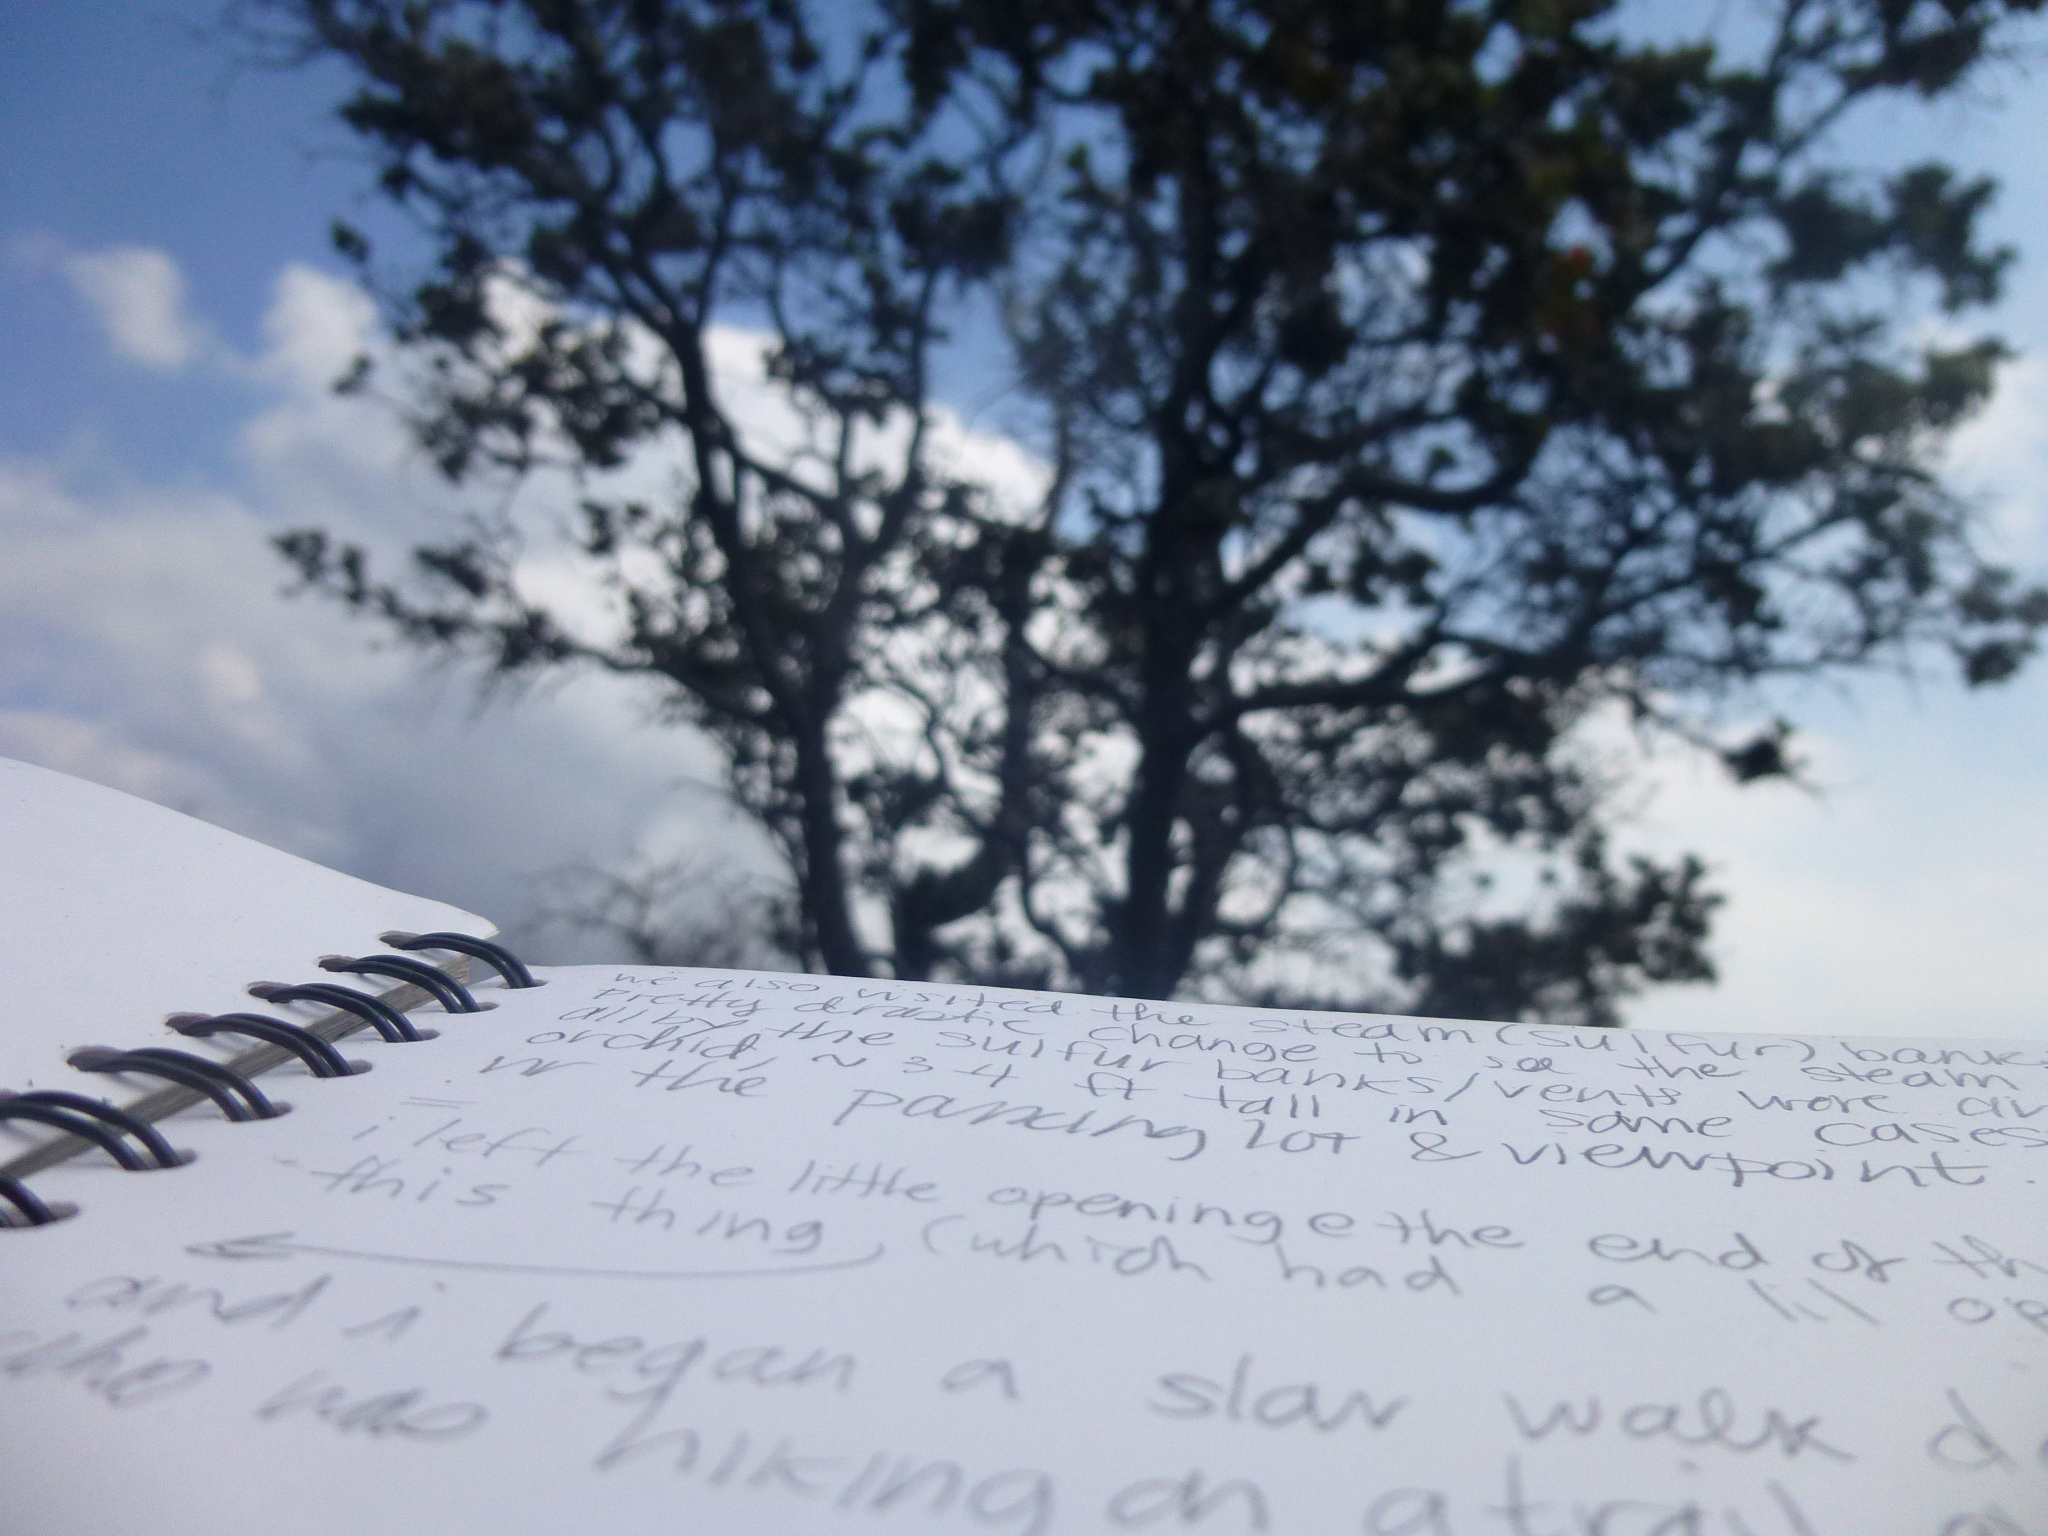 we also visited the steam (sulfur) banks
pretty drastic change to see the steam
all by the sulfur banks/vents were
orchid, ~ 3 4 ft tall in some cases
w the parking lot & viewpoint.
i left the little opening @ the end of th
this thing, (which had a lil op
and i began a slow walk
who was hiking on a trail